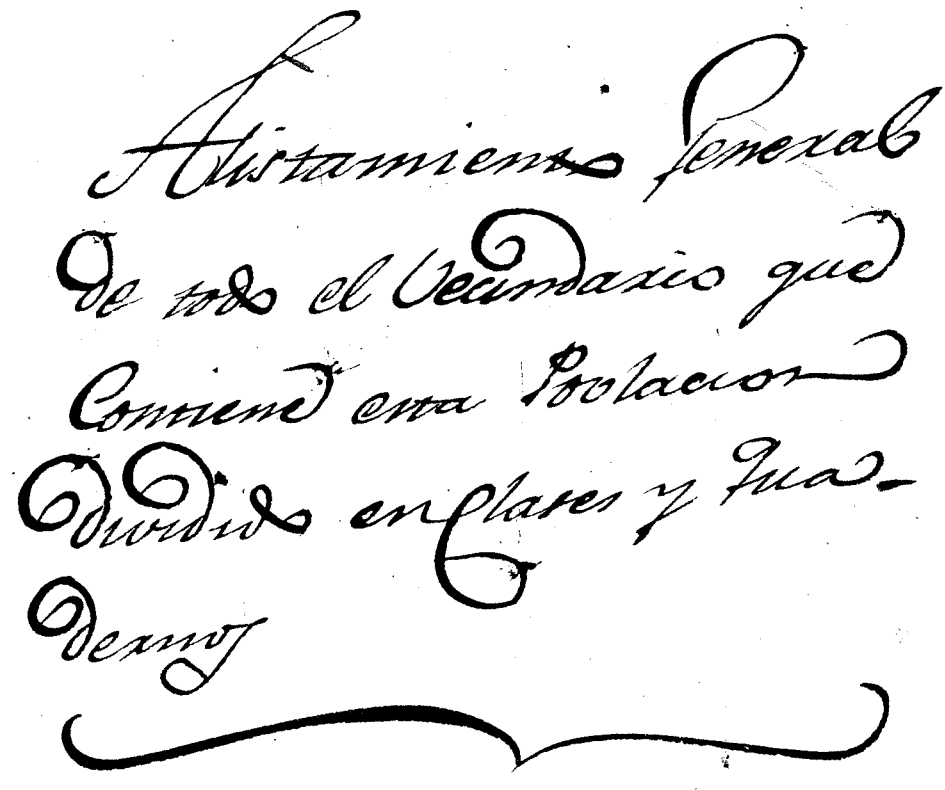 Alistamiento General
de todo el Vecindario que
Contiene esta Poblacion
dividido en Clases y Qua-
dernos